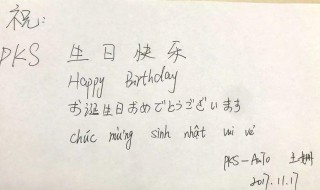 祝:
PKS 生日快乐
Happy Birthday
お誕生日おめでとうございます
chúc mừng sinh nhật vui vẻ
PKS-A2TO
2017.11.17